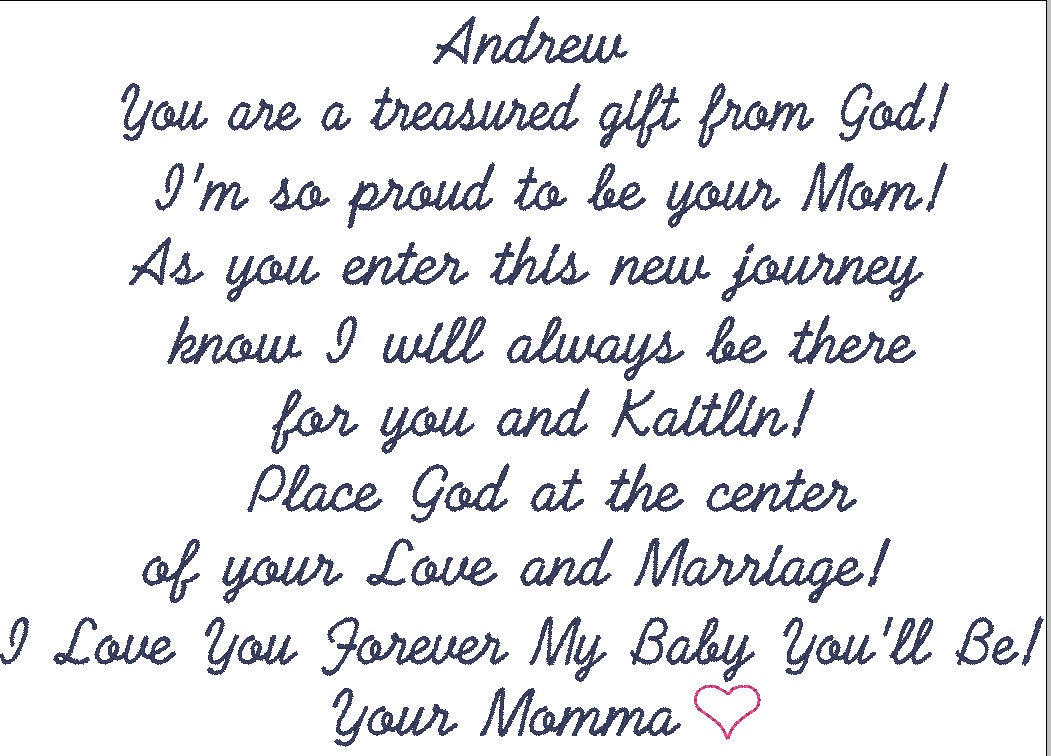 Andrew
You are a treasured gift from God!
I'm so proud to be your Mom!
As you enter this new journey
know I will always be there
for you and Kaitlin!
Place God at the center
of your Love and Marriage!
I Love You Forever My Baby You'll Be!
Your Momma